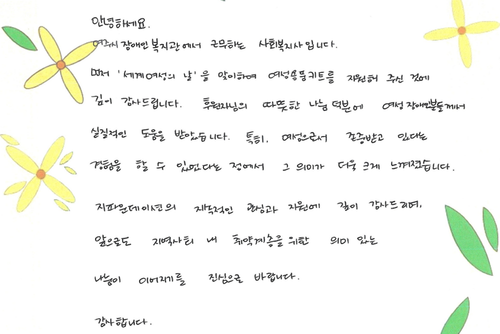 안녕하세요.
여주시 장애인복지관에서 근무하는 사회복지사입니다.
먼저 '세계여성의 날'을 맞이하여 여성용품키트를 지원해 주신 것에
깊이 감사드립니다. 후원자님의 따뜻한 나눔 덕분에 여성 장애인분들께서
실질적인 도움을 받았습니다. 특히, 여성으로서 존중받고 있다는
경험을 할 수 있었다는 점에서 그 의미가 더욱 크게 느껴졌습니다.
지파운데이션의 지속적인 관심과 지원에 깊이 감사드리며,
앞으로도 지역사회 내 취약계층을 위한 의미 있는
나눔이 이어지기를 진심으로 바랍니다.
감사합니다.